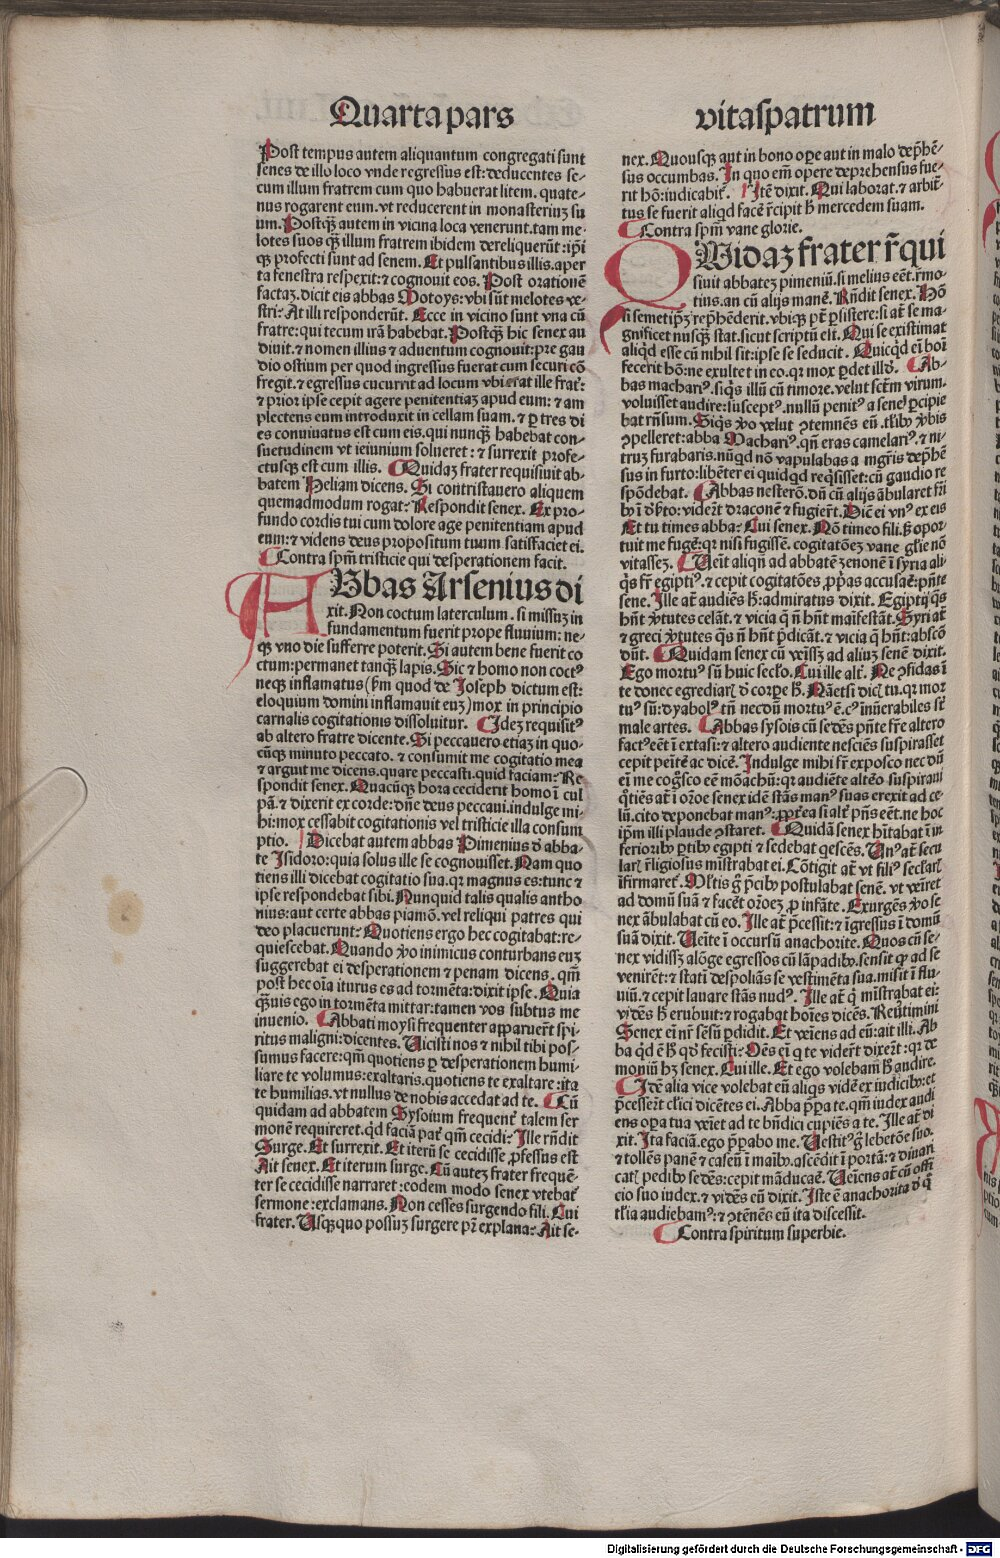 Quarta pars
Post tempus autem aliquantum congregati sunt
senes de illo loco vnde regressus est: deducentes se-
cum illum fratrem cum quo habuerat litem. quate-
nus rogarent eum. vt reducerent in monasteriuz su
um. Postqȝ autem in vicina loca venerunt. tam me-
lotes suos qȝ illum fratrem ibidem dereliquerūt: ipi
qȝ profecti sunt ad senem. Et pulsantibus illis. aper
ta fenestra respexit: ⁊ cognouit eos. Post orationē
factaz. dicit eis abbas Motoys: vbi sūt melotes ve-
stri: At illi responderūt. Ecce in vicino sunt vna cū
fratre: qui tecum irā habebat. Postqȝ hic senex au
diuit. ⁊ nomen illius ⁊ aduentum cognouit: pre gau
dio ostium per quod ingressus fuerat cum securi cō
fregit. ⁊ egressus cucurrit ad locum vbi erat ille frat̄:
⁊ prior ipse cepit agere penitentiaz apud eum: ⁊ am
plectens eum introduxit in cellam suam. ⁊ ꝑ tres di
es conuiuatus est cum eis. qui nunqȝ habebat con-
suetudinem vt ieiunium solueret: ⁊ surrexit profe-
ctusqȝ est cum illis. Quidaz frater requisiuit ab-
batem Peliam dicens. Si contristauero aliquem
quemadmodum rogat: Respondit senex. Ex pro-
fundo cordis tui cum dolore age penitentiam apud
eum: ⁊ videns deus propositum tuum satisfaciet ei.
Contra spm̄ tristicie qui desperationem facit.
ABbas Arsenius di
xit. Non coctum laterculum. si missuz in
fundamentum fuerit prope fluuium: ne-
qȝ vno die sufferre poterit. Si autem bene fuerit co
ctum: permanet tanqȝ lapis. Sic ⁊ homo non coctꝰ
neqȝ inflamatus (km̄ quod de Joseph dictum est:
eloquium domini inflamauit euz) mox in principio
carnalis cogitationis dissoluitur. Idez requisitꝰ
ab altero fratre dicente. Si peccauero etiaz in quo-
cūqȝ minuto peccato. ⁊ consumit me cogitatio mea
⁊ arguit me dicens. quare peccasti. quid faciam: Re
spondit senex. Quacūqȝ hora ceciderit homo ī cul
pā. ⁊ dixerit ex corde: dn̄e deus peccaui. indulge mi-
hi: mox cessabit cogitationis vel tristicie illa consum
ptio. Dicebat autem abbas Pimenius ð abba-
te Isidoro: quia solus ille se cognouisset. Nam quo
tiens illi dicebat cogitatio sua. qr magnus es: tunc ⁊
ipse respondebat sibi. Nunquid talis qualis antho
nius: aut certe abbas piamō. vel reliqui patres qui
deo placuerunt: Quotiens ergo hec cogitabat: re-
quiescebat. Quando ꝟo inimicus conturbans euz
suggerebat ei desperationem ⁊ penam dicens. qm̄
post hec oīa iturus es ad tormēta: dixit ipse. Quia
qȝuis ego in tormēta mittar: tamen vos subtus me
inuenio. Abbati moysi frequenter apparuert̄ spi-
ritus maligni: dicentes. Uicisti nos ⁊ nihil tibi pos-
sumus facere: qm̄ quotiens ꝑ desperationem humi-
liare te volumus: exaltaris. quotiens te exaltare: ita
te humilias. vt nullus de nobis accedat ad te. Cū
quidam ad abbatem Sysoium frequent̄ talem ser
monē requireret. qd faciā pat̄ qm̄ cecidi: Ille rn̄dit
Surge. Et surrexit. Et iterū se cecidisse ꝓfessus est
Ait senex. Et iterum surge. Cū autez frater frequē-
ter se cecidisse narraret: eodem modo senex vtebat̄
sermone: exclamans. Non cesses surgendo fili. Cui
frater. Usqȝquo possuz surgere pr̄ explana: Ait se-
vitaspatrum
nex. Quousqȝ aut in bono oꝑe aut in malo deprhē-
sus occumbas. In quo em̄ opere deprehensus fue-
rit hō: iudicabit̄. Itē dixit. Qui laborat. ⁊ arbit̄-
tus se fuerit aliqd facē r̄cipit h̄ mercedem suam.
Contra spm̄ vane glorie.
QUidaz frater r̄qui
siuit abbatez pimeniū. si melius eēt. r̄mo-
tius. an cū alijs manē. Rn̄dit senex. Hō
si semetipz reprhēderit. vbiqȝ pt̄ ꝑsistere: si at̄ se ma-
gnificet nusqȝ stat. sicut scriptū est. Qui se existimat
aliqd esse cū nihil sit: ipse se seducit. Quicqd eī boī
fecerit hō: ne exultet in eo. qr mox ꝑdet illð. Ab-
bas machariꝰ. siqs illū cū timore. velut sctm̄ virum.
voluisset audire: susceptꝰ. nullū penitꝰ a sene ꝑcipie
bat rn̄sum. Siqs ꝟo velut ꝯtemnēs eū. tlibꝫ ꝟbis
ꝯpelleret: abba Machariꝰ. qn̄ eras camelariꝰ. ⁊ ni-
truz furabaris. nūqd nō vapulabas a mgr̄is deprhē
sus in furto: libēter ei quidqd reqsisset: cū gaudio re
spōdebat. Abbas nesterō. dū cū alijs ābularet fr̄i
bꝫ ī ðꝑto: vider̄t draconē ⁊ fugier̄t. Dicē ei vnꝰ ex eis
Et tu times abba: Cui senex. Nō timeo fili. sꝫ opor
tuit me fugē: qr nisi fugissē. cogitatōez vane glīe nō
vitassez. Ueīt aliqn̄ ad abbatē zenonē ī syria ali-
qs fr̄ egiptiꝰ. ⁊ cepit cogitatōes ꝓprias accusaē: pn̄te
sene. Ille at̄ audiēs h̄: admiratus dixit. Egiptij qs
hn̄t ꝟtutes celāt. ⁊ vicia q̄ nō hn̄t maifestāt. Syri at̄
⁊ greci ꝟtutes qs nō hn̄t p̄dicāt. ⁊ vicia q̄ hn̄t: abscō
dūt. Quidam senex cū veīssz ad aliuz senē dixit.
Ego mortuꝰ suꝫ huic seclo. Cui ille alt̄. Ne ꝯfidas ī
te donec egrediar̄ ð corꝑe h̄. Nāetsi dic̄ tu. qr mor
tuꝰ suꝫ: dyabolꝰ tn̄ necdū mortuꝰ ē. cꝰ īnūerabiles st̄
male artes. Abbas sysois cū sedēs pn̄te fr̄e altero
factꝰ eēt ī extasi: ⁊ altero audiente nesciēs suspirasset
cepit peītē ac dicē. Indulge mihi fr̄ exposco nec dū
eī me cogsco eē mōachū: qr audiēte alt̄o suspiraui
qtiēs at̄ ī orōe senex idē stās manꝰ suas erexit ad ce-
lū. cito deponebat manꝰ: ꝓpterea si alt̄ pn̄s eēt. ne hoc
ip̄m illi plaude ꝯstaret. Quidā senex hītabat ī in
ferioribꝫ ꝑtibꝫ egipti ⁊ sedebat qescēs. Unꝰ at̄ secu
laris r̄ligiosus mīstrabat ei. Cōtigit at̄ vt filiꝰ seclar̄
īfirmaret̄. Mltis ḡ p̄cibꝫ postulabat senē. vt veīret
ad domū suā ⁊ facēt orōez ꝓ infāte. Exurgēs ꝟo se
nex ābulabat cū eo. Ille at̄ p̄cessit: ⁊ īgressus ī domū
suā dixit. Ueīte ī occursū anachorite. Quos cū se-
nex vidissz alōge egressos cū lāpadibꝫ. sensit qꝫ ad se
venirēt: ⁊ statī despoliās se vestimēta sua. misit ī flu-
uiū. ⁊ cepit lauare stās nudꝰ. Ille at̄ q̄ mīstrabat ei:
vidēs h̄ erubuit: ⁊ rogabat hoīes dicēs. Reūtimini
Senex eī nr̄ sēsū ꝑdidit. Et veīens ad eū: ait illi. Ab
ba qd ē h̄ qð fecisti: Oēs eī q te vider̄t dixer̄t: qr de
moniū hꝫ senex. Cui ille. Et ego volebam h̄ audire.
Idē alia vice volebat eū aliqs vidē ex iudicibꝫ: et
p̄cesser̄t clici dicētes ei. Abba pr̄pa te. qm̄ iudex audi
ens oꝑa tua veīet ad te bn̄dici cupiēs a te. Ille at̄ di
xit. Ita faciā. ego pr̄pabo me. Uestitꝰ ḡ lebetōe suo.
⁊ tollēs panē ⁊ caseū ī maībꝫ. ascēdit ī portā: ⁊ diuari
cat̄ pedibꝫ sedēs: cepit māducaē. Ueīens at̄ cū offi
cio suo iudex. ⁊ vidēs eū dixit. Iste ē anachorita ð q̄
tlīa audiebamꝰ: ⁊ ꝯtēnēs eū ita discessit.
Contra spiritum superbie.
Digitalisierung gefördert durch die Deutsche Forschungsgemeinschaft - DFG